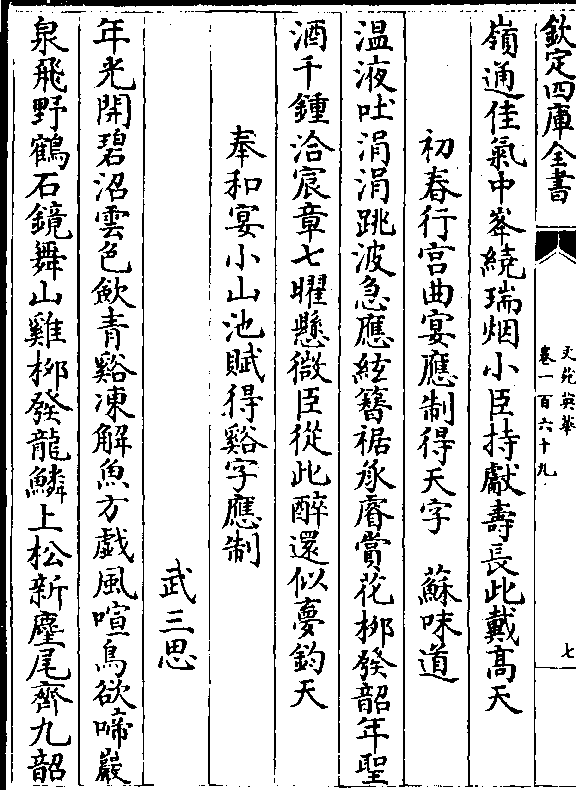 欽定四庫全書
文苑英華
卷一百六十九
七
嶺通佳氣中峯繞瑞烟小臣持獻壽長此戴髙天
初春行宫曲宴應制得天字　蘇味道
温液吐涓涓跳波急應絃簪裾承睿賞花栁發韶年聖
酒千鍾洽宸章七曜懸微臣從此醉還似夢鈞天
奉和宴小山池賦得谿字應制
武三思
年光開碧沼雲色歛青谿凍解魚方戲風喧鳥欲啼巖
泉飛野鶴石鏡舞山雞栁發龍鱗上松新麈尾齊九韶